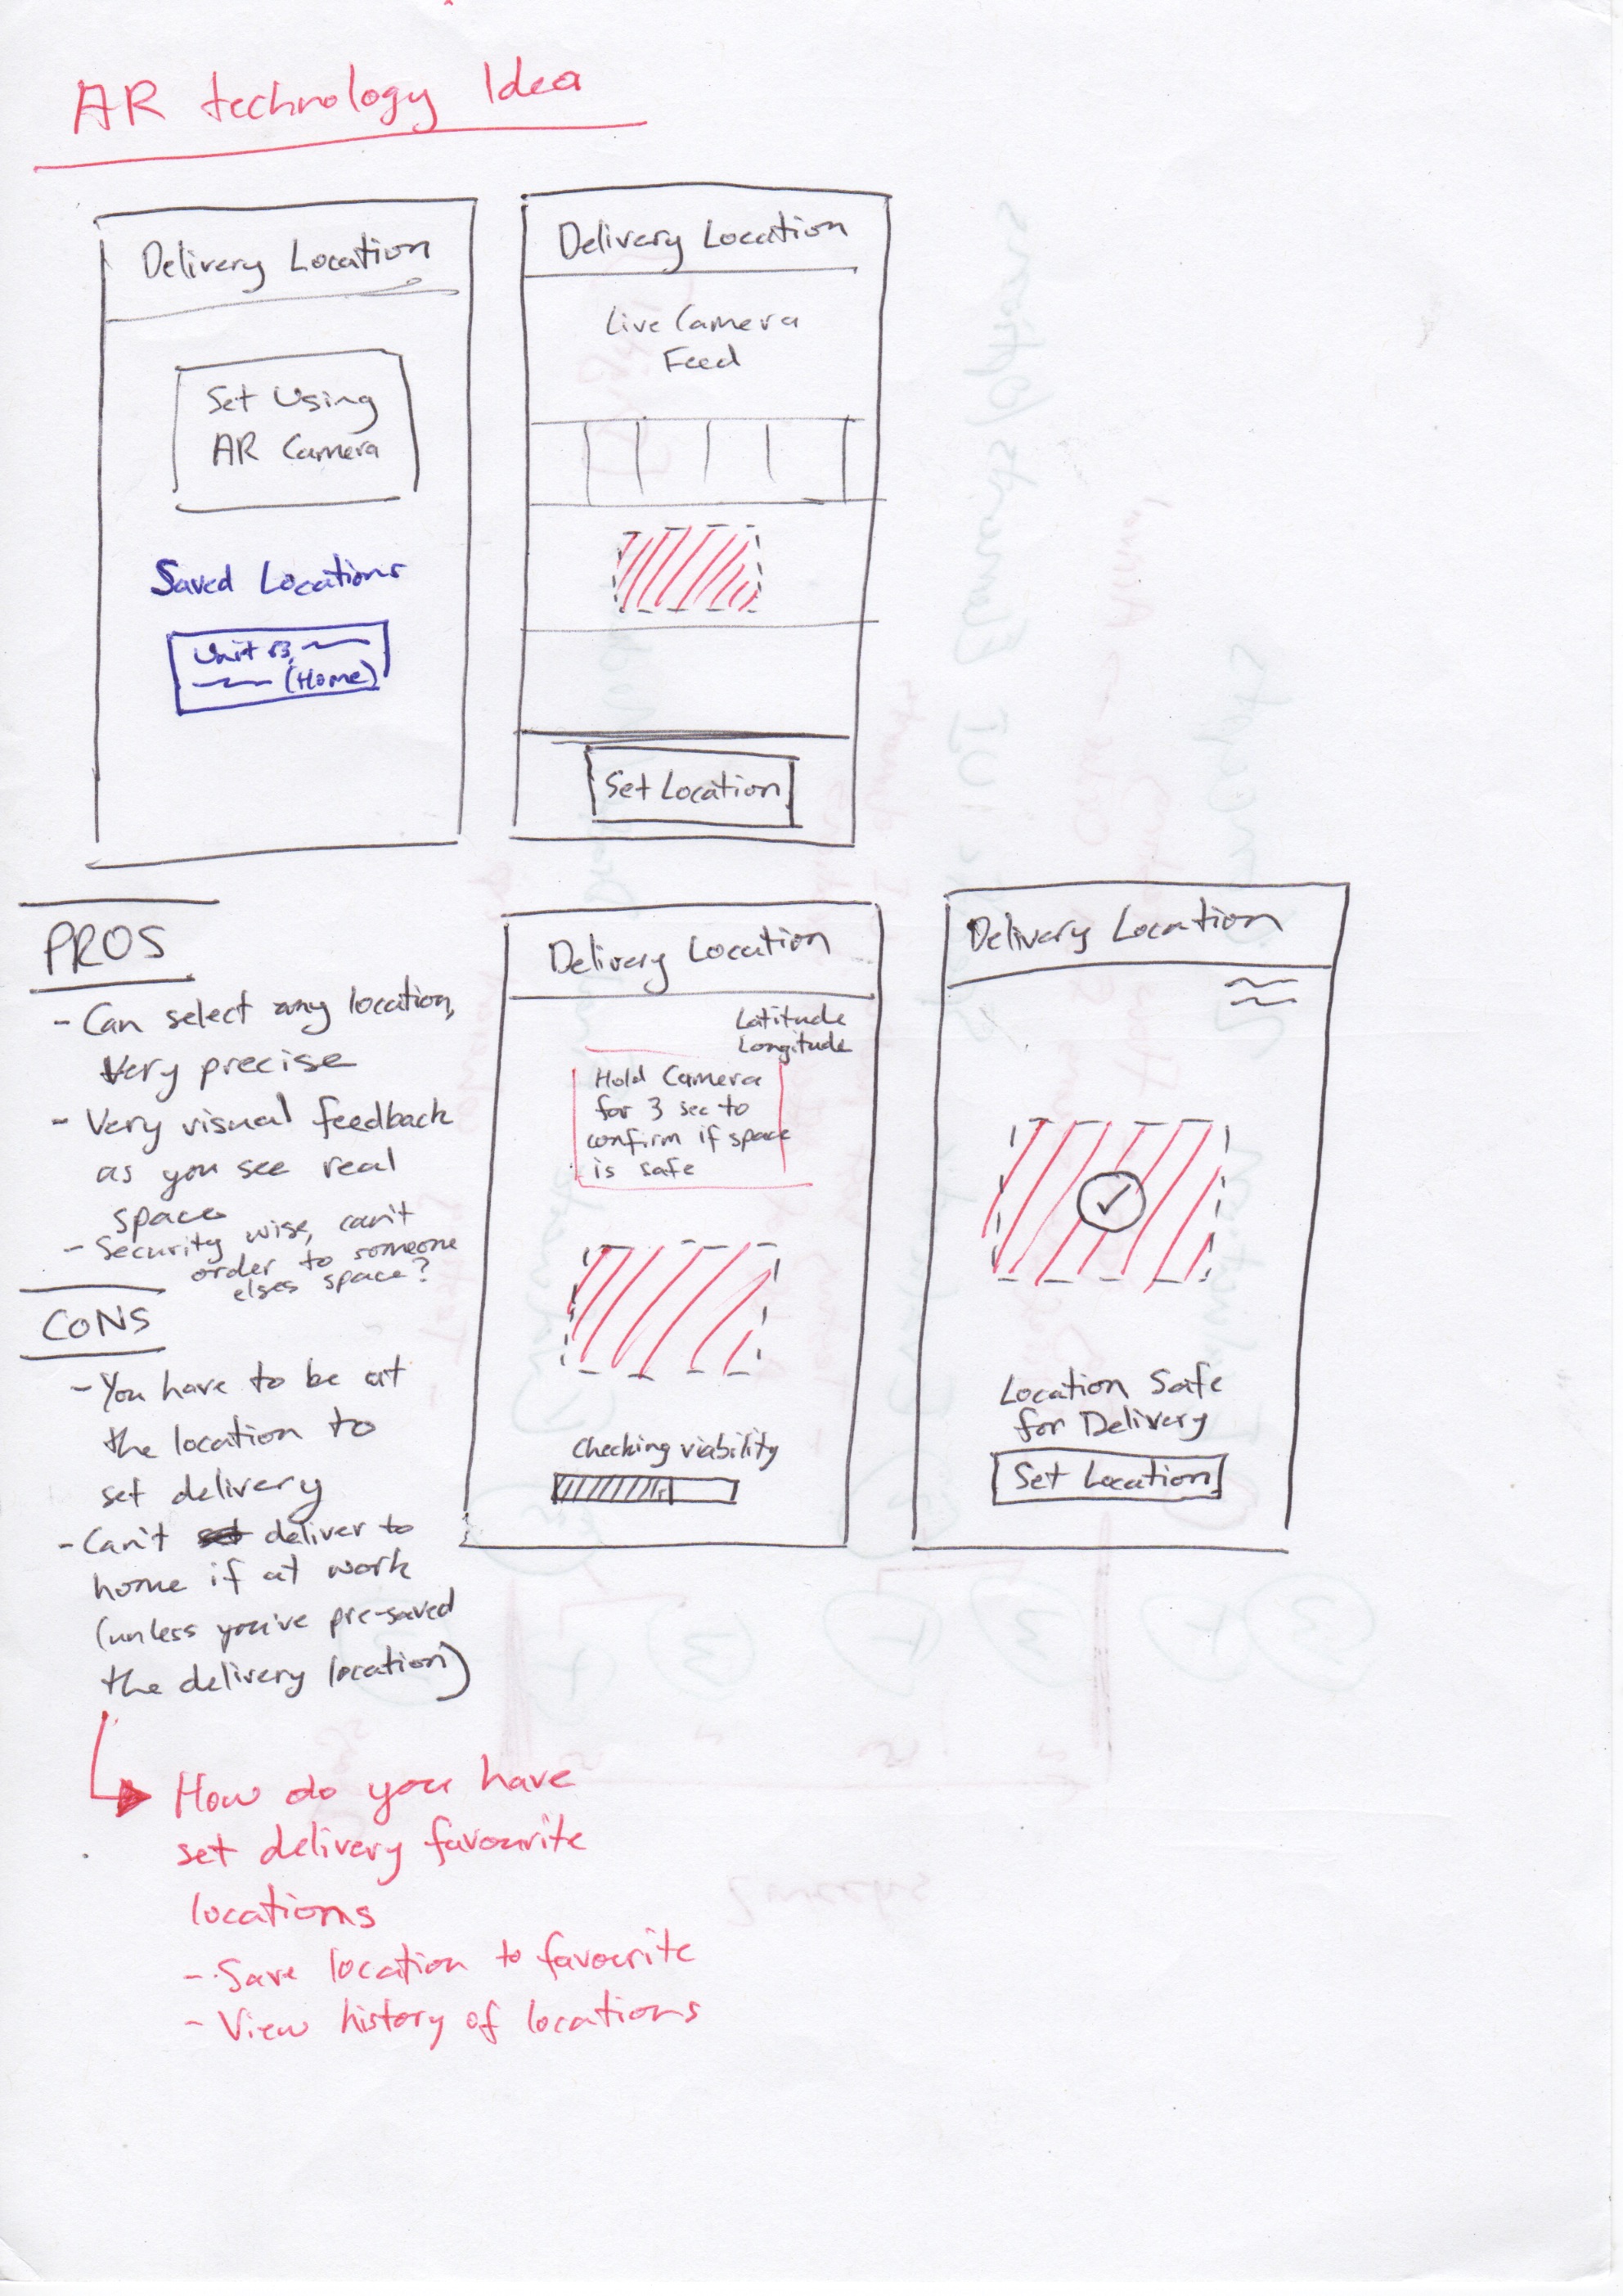 AR technology Idea
Delivery Location
Set Using
AR Camera
Saved Locations
Unit 53,
(Home)
Delivery Location
Live Camera
Feed
Set Location
PROS
- Can select any location,
Very precise
- Very visual feedback
as you see real
space
- Security wise, can't
order to someone
elses space?
CONS
- You have to be at
the location to
set delivery
- Can't set deliver to
home if at work
(unless you've pre-saved
the delivery location)
How do you have
set delivery favourite
locations
- Save location to favourite
- View history of locations
Delivery Location
Latitude
Longitude
Hold Camera
for 3 sec to
confirm if space
is safe
Checking viability
Delivery Location
Location Safe
for Delivery
Set Location